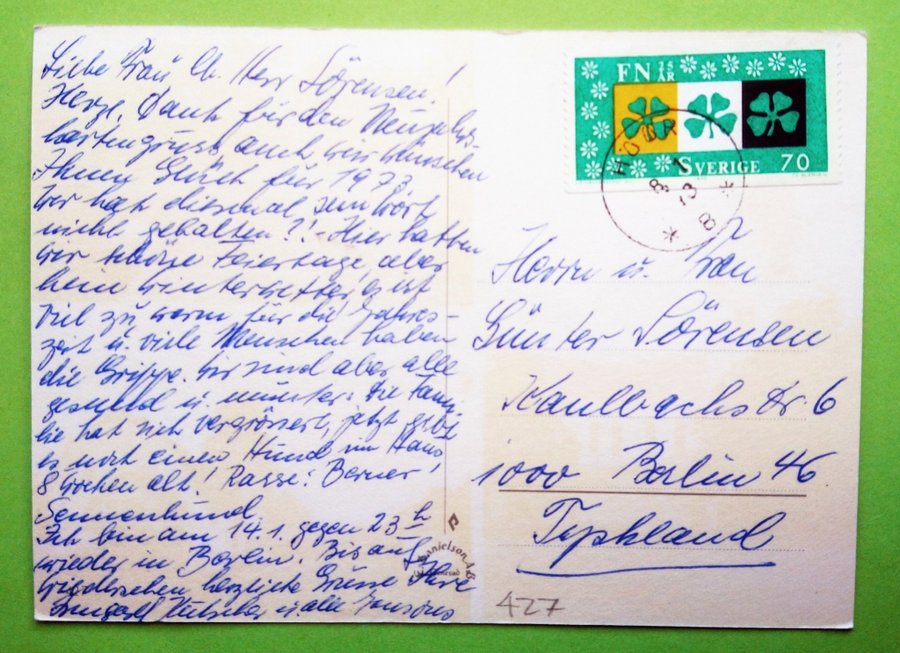 Liebe Frau u. Herr Sörensen!
Herzl. Dank für den Neujahrs-
kartengruss, auch wir wünschen
Ihnen Glück für 1973.
Wer hat diesmal sein Wort
nicht gehalten?! - Hier hatten
wir schöne Feiertage, aber
kein Winterwetter, es ist
viel zu warm für die Jahres-
zeit u. viele Menschen haben
die Grippe. Wir sind aber alle
gesund u. munter. Die Fami-
lie hat sich vergrössert, jetzt gibt
es noch einen Hund im Haus,
8 Wochen alt! Rasse: Berner
Sennenhund
Ich bin am 14.1. gegen 23 h
wieder in Berlin. Bis auf
Wiedersehen herzliche Grüsse Ihre
Irmgard u. alle
FN 25 ÅR
SVERIGE 70
HÖÖR
8 1
73
* B *
Herrn u. Frau
Günter Sörensen
Kaulbachstr 6
1000 Berlin 46
Tyskland
Danielson AB
427